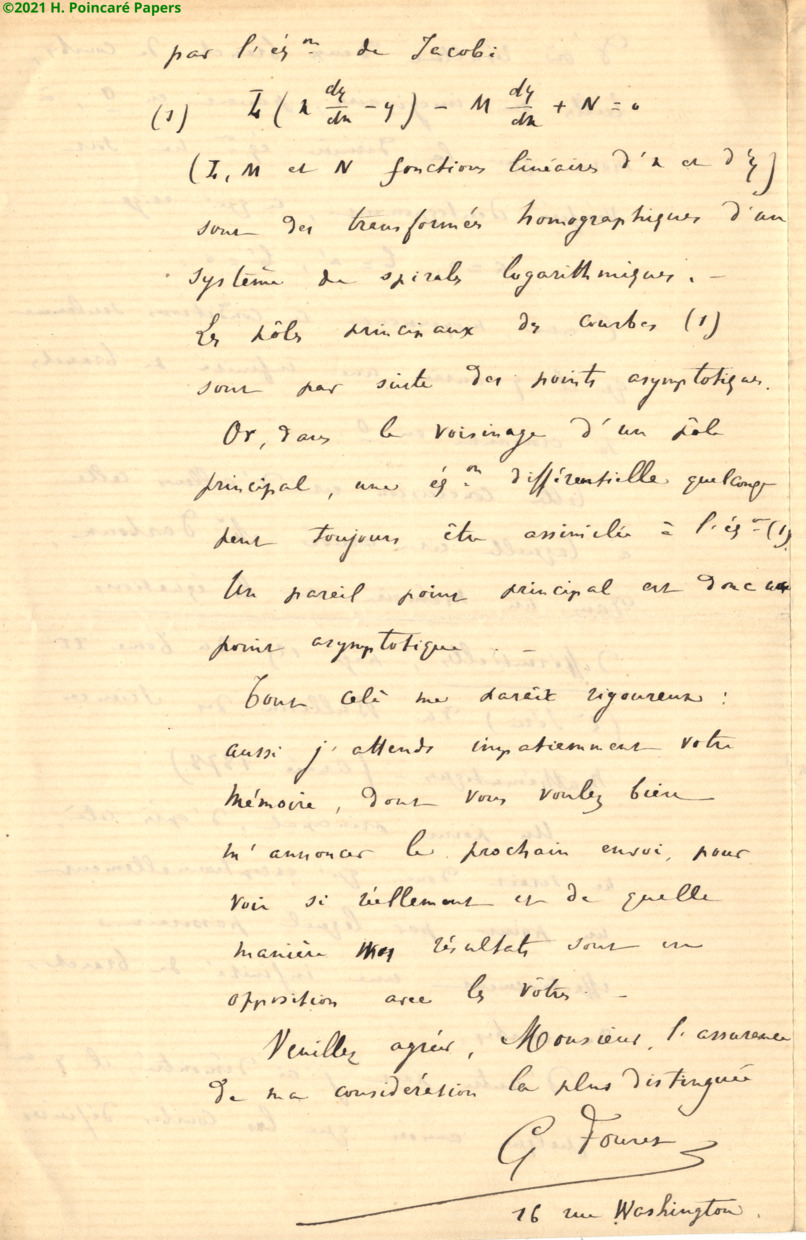 ©2021 H. Poincaré Papers
par l'éq^on de Jacobi
(1) L (x dy/dx - y) - M dy/dx + N = 0
(L, M et N fonctions linéaires d'x et d'y)
sont des transformés homographiques d'un
système de spirales logarithmiques. –
Les pôles principaux des courbes (1)
sont par suite des points asymptotiques.
Or, dans le voisinage d'un pôle
principal, une éq^on différentielle quelconque
peut toujours être assimilée à l'éq^on (1)
Un pareil point principal est donc un
point asymptotique. –
Tout celà me paraît rigoureux :
aussi j'attends impatiemment votre
Mémoire, dont vous voulez bien
m'annoncer le prochain envoi, pour
voir si réellement et de quelle
manière mes résultats sont en
opposition avec les vôtres. –
Veuillez agréer, Monsieur, l'assurance
de ma considération la plus distinguée
G Fouret
16 rue Washington.